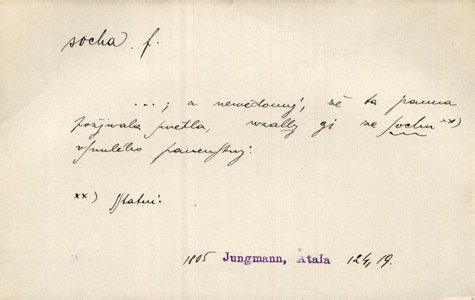 socha f.
...; a newědomý, zě ta panna
požjwala swetla, wzalby gi za sochu xx)
panenstwj.
xx) Statui.
1805 Jungmann, Atala 124, 19.